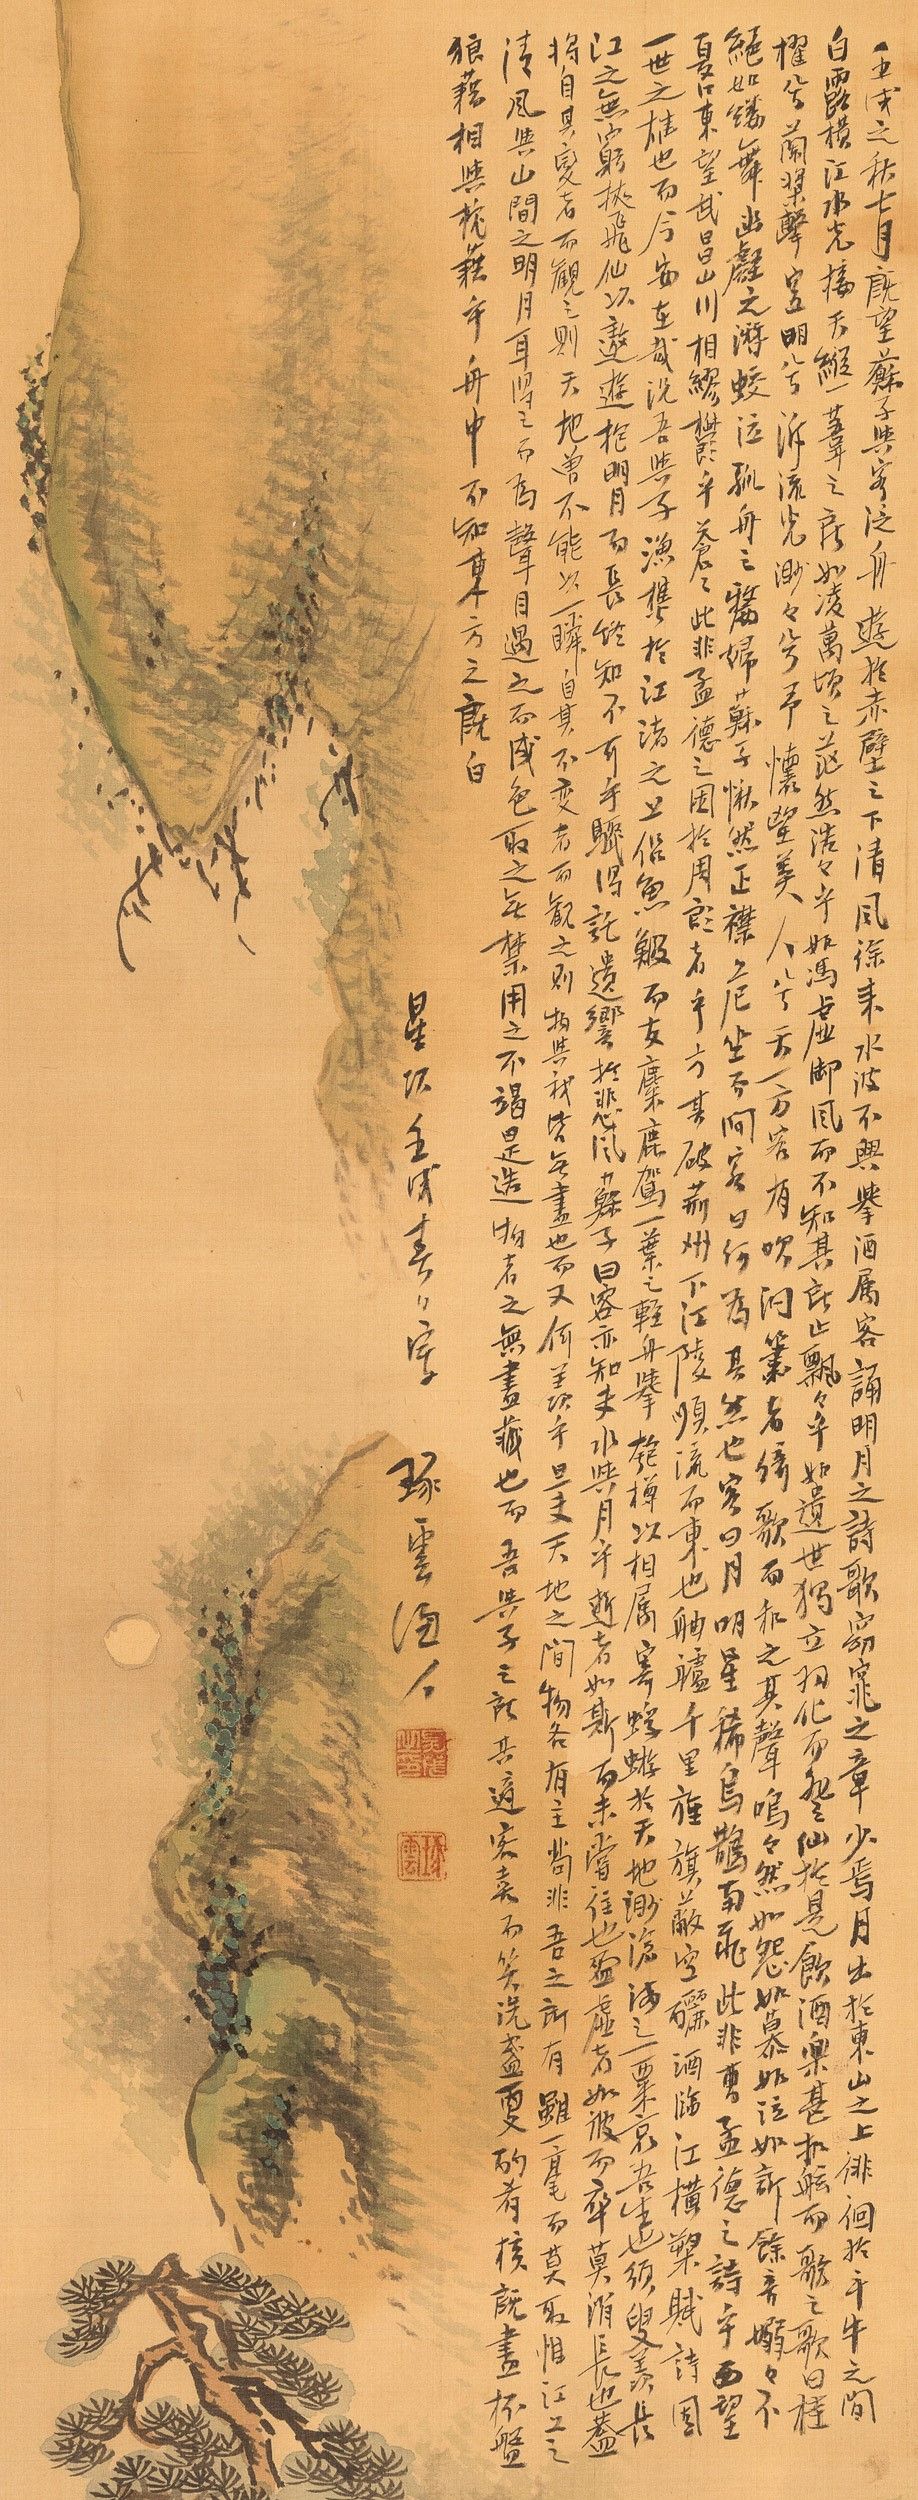 壬戌之秋七月既望蘇子與客泛舟遊於赤壁之下清風徐来水波不興舉酒属客誦明月之詩歌窈窕之章少焉月出於東山之上徘徊於斗牛之間
白露横江水光接天縦一葦之所如凌萬頃之茫然浩々乎如馮虚御風而不知其所止飄々乎如遺世獨立羽化而登仙於是飲酒樂甚扣舷而歌之歌曰桂
櫂兮蘭槳擊空明兮泝流光渺々兮予懐望美人兮天一方客有吹洞簫者倚歌而和之其聲嗚々然如怨如慕如泣如訴餘音嫋々不
絶如縷舞幽壑之潜蛟泣孤舟之嫠婦蘇子愀然正襟危坐而問客曰何為其然也客曰月明星稀烏鵲南飛此非曹孟德之詩乎西望
夏口東望武昌山川相繆欝乎蒼々此非孟德之困於周郎者乎方其破荊州下江陵順流而東也舳艫千里旌旗蔽空釃酒臨江横槊賦詩固
一世之雄也而今安在哉况吾與子漁樵於江渚之上侶魚鰕而友麋鹿駕一葉之軽舟舉匏樽以相属寄蜉蝣於天地渺滄海之一粟哀吾生也須臾羨長
江之無窮挾飛仙以遨遊抱明月而長終知不可乎驟得託遺響於悲風蘇子曰客亦知夫水與月乎逝者如斯而未嘗往也盈虚者如彼而卒莫消長也蓋
将自其変者而觀之則天地曽不能以一瞬自其不変者而観之則物與我皆無盡也而又何羨乎且夫天地之間物各有主苟非吾之所有雖一毫而莫取惟江上之
清風與山間之明月耳得之而為聲目遇之而成色取之無禁用之不竭是造物者之無盡藏也而吾與子之所共適客喜而笑洗盞更酌肴核既盡杯盤
狼藉相與枕藉乎舟中不知東方之既白
星次壬戌春日寫
琢雲酒人
琢雲